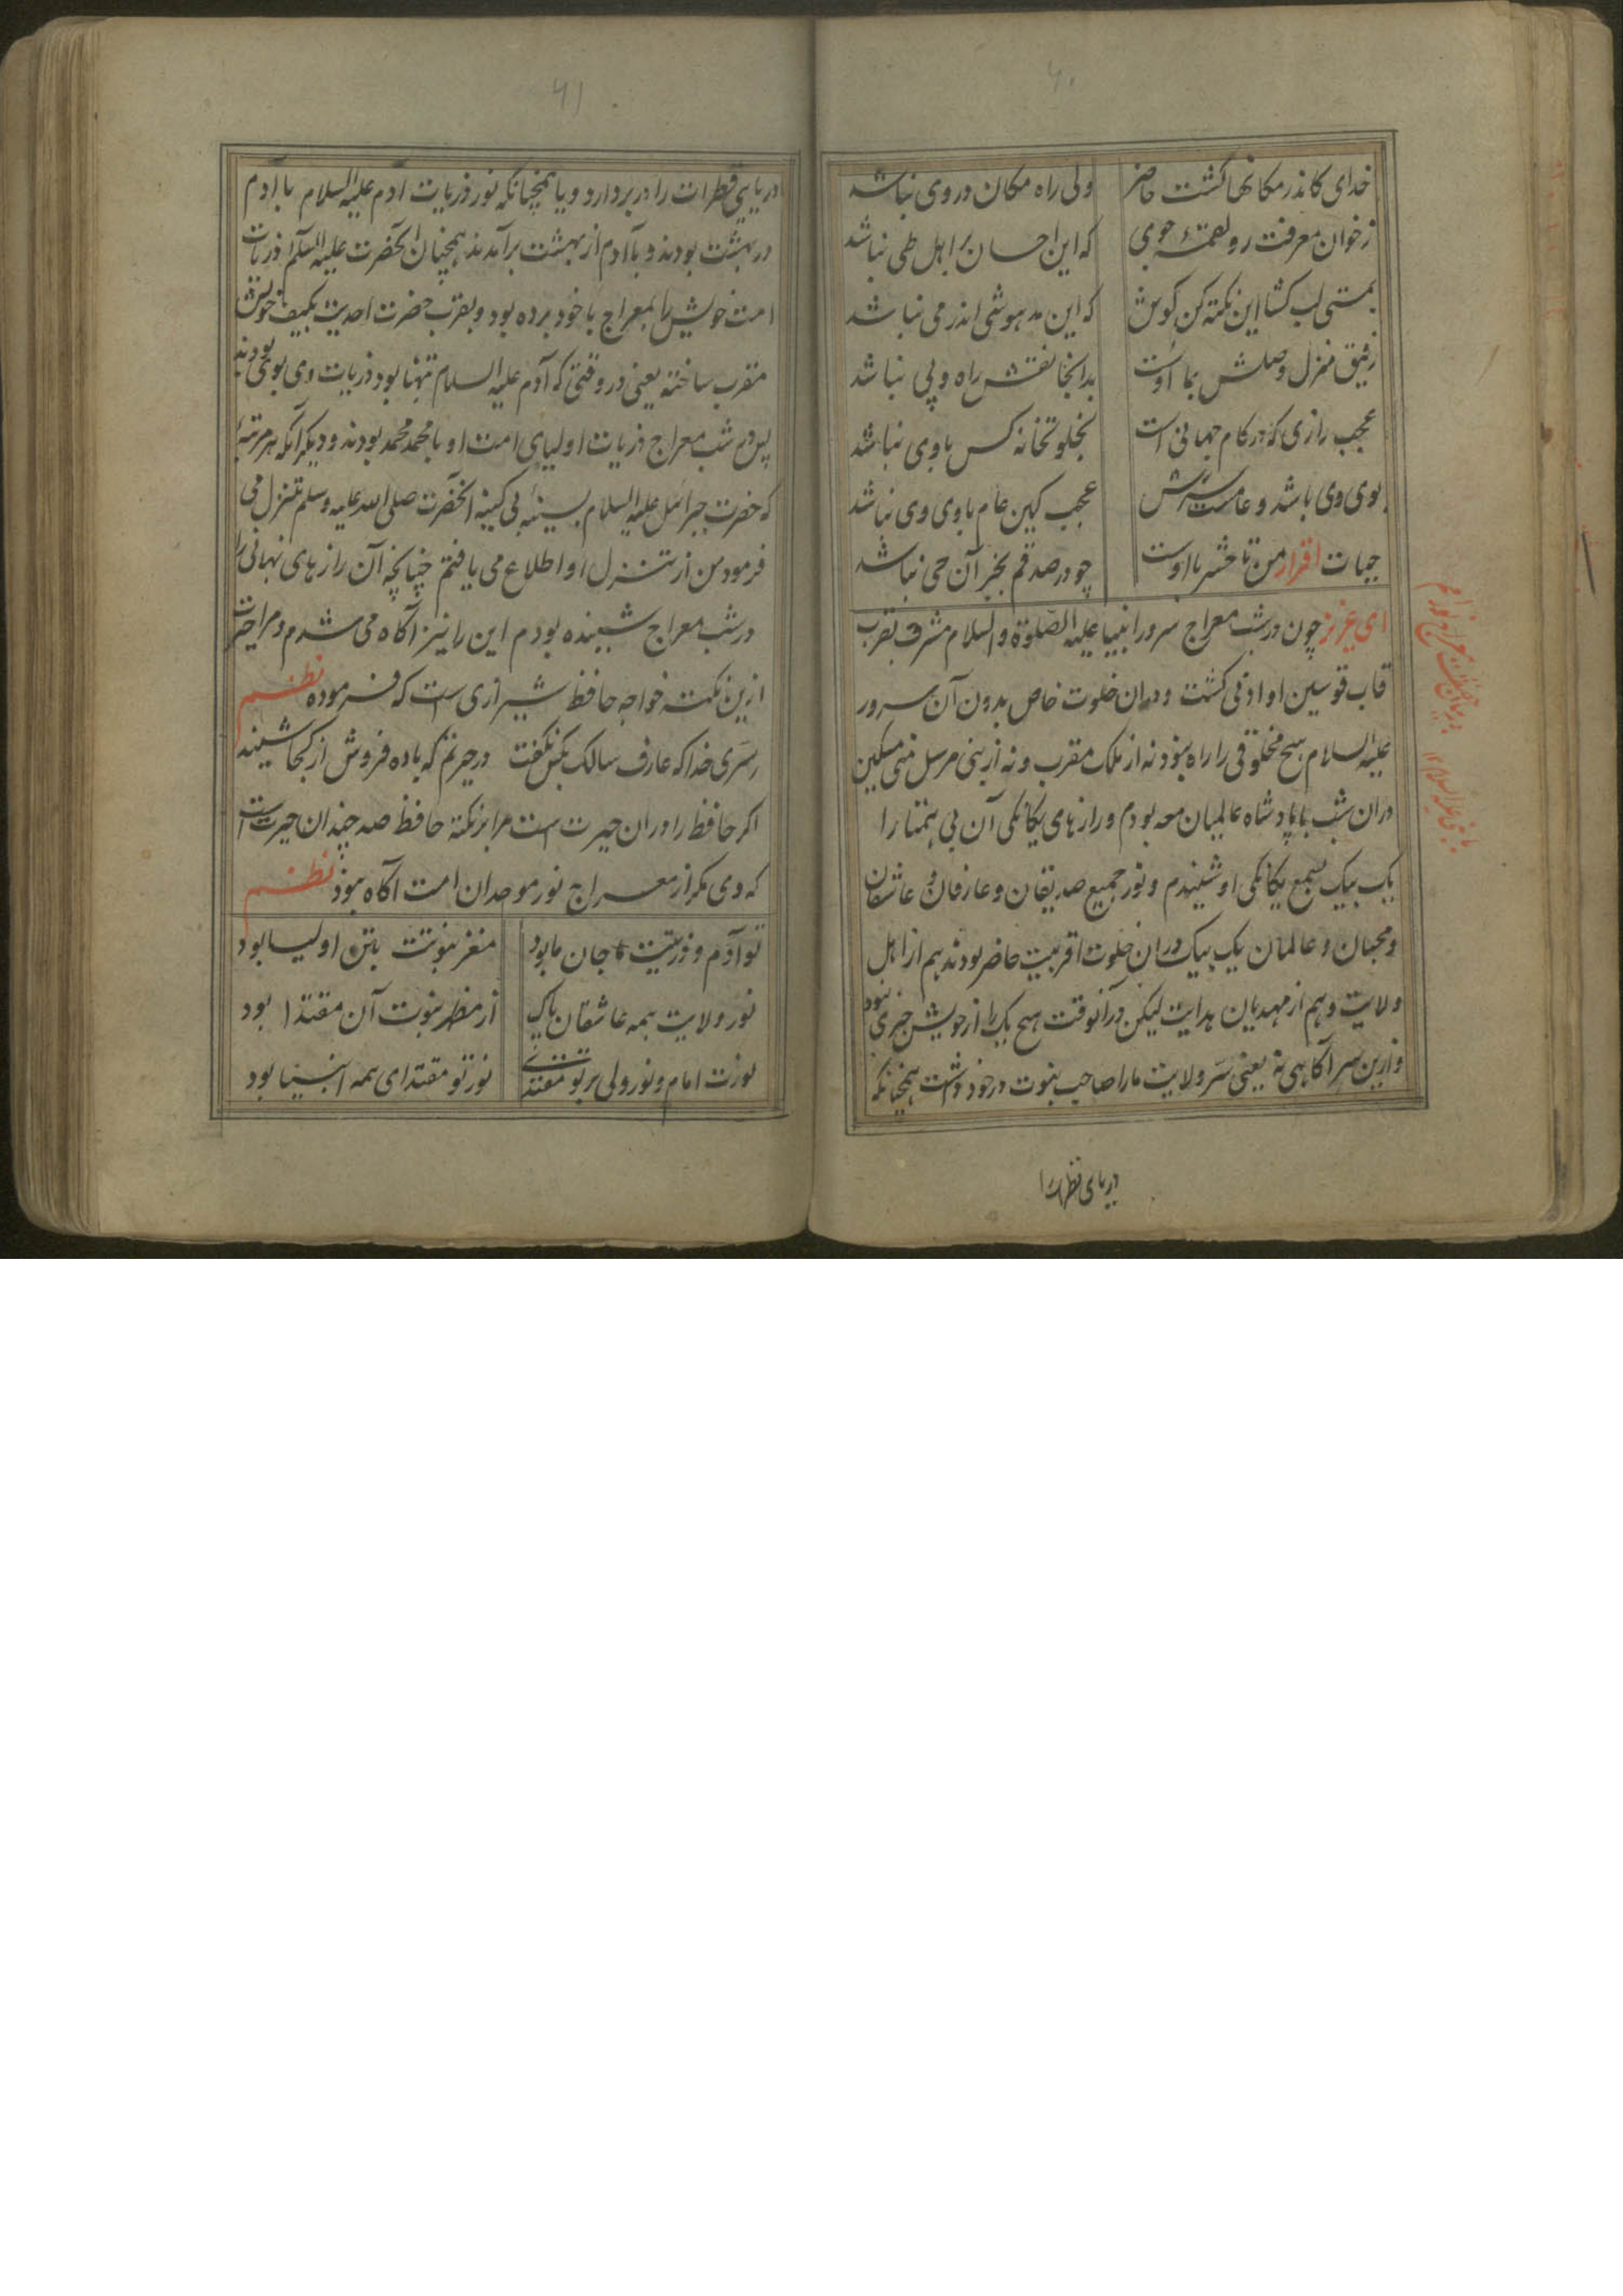 ۶۰
خدای کاندر مکانها گشت حاضر ولی راه مکان در وی نباشد
زخوان معرفت رو لقمهٔ جوی که این احسان بر اهل طی نباشد
بمستی لب کشا این نکته کن گوش که این مدهوشی اندر می نباشد
منزل وصلش بما اوست بدانجا نقش راه و پی نباشد
عجب رازی که در کام جهانی است بخلوتخانه کس با وی نباشد
بوی وی باشد و عامست عجب کین عام با وی وی نباشد
حیات اقرار من تا حشر با اوست چو در صد قم بخبر آن حی نباشد
ای عزیز چون در شب معراج سرور انبیا علیه الصلوة والسلام مشرف بقرب
قاب قوسین او ادنی گشت و دران خلوت خاص بدون آن سرور
علیه السلام هیچ مخلوقی را راه نبود نه از ملک مقرب و نه از نبی مرسل منی مسکین
دران شب با پادشاه عالمیان معه بودم و رازهای یگانگی آن بی همتا را
یک بیک بسمع یگانگی او شنیدم و نور جمیع صدیقان و عارفان و عاشقان
و محبان و عالمان یک بیک دران خلوت اقربیت حاضر بودند هم از اهل
ولایت و هم از مهدیان هدایت لیکن در آنوقت هیچ یک را از خویش خبری نبود
و ازین سر آگاهی نه یعنی سر ولایت ما را صاحب نبوت در خود داشت همچنانکه
دریای قطرات را
۶۱
دریایی قطرات را در بر دارد و یا همچنانکه نور ذریات آدم علیه السلام با آدم
در بهشت بودند و با آدم از بهشت برآمدند همچنان آنحضرت علیه السلام ذریات
امت خویش را بمعراج با خود برده بود و بقرب حضرت احدیت بکیف خویش
مقرب ساخته یعنی در وقتی که آدم علیه السلام تنها بود ذریات وی بوی بودند
پس در شب معراج ذریات اولیای امت او با محمد محمد بودند و دیگر آنکه هر مرتبهٔ
که حضرت جبرائیل علیه السلام بسینهٔ بی کینه آنحضرت صلی الله علیه وسلم تنزل می
فرمود من از تنزل او اطلاع می یافتم چنانچه آن رازهای نهانی را
در شب معراج شنیده بودم این را نیز آگاه می شدم و مرا حیرت
ازین نکته خواجه حافظ شیرازی است که فرموده نظم
سری خدا که عارف سالک بکس نگفت در حیرتم که باده فروش از کجا شنید
اگر حافظ را دران حیرت است مرا بر نکته حافظ صد چندان حیرت است
که وی مگر از معراج نور موحدان امت آگاه نبود نظم
تو آدم و ذریتیت جان ما بود مغز نبوتت بتن اولیا بود
نور ولایت همه عاشقان پاک از مظهر نبوت آن مقتدا بود
نورت امام و نور ولی بر تو مقتدی نور تو مقتدای همه انبیا بود